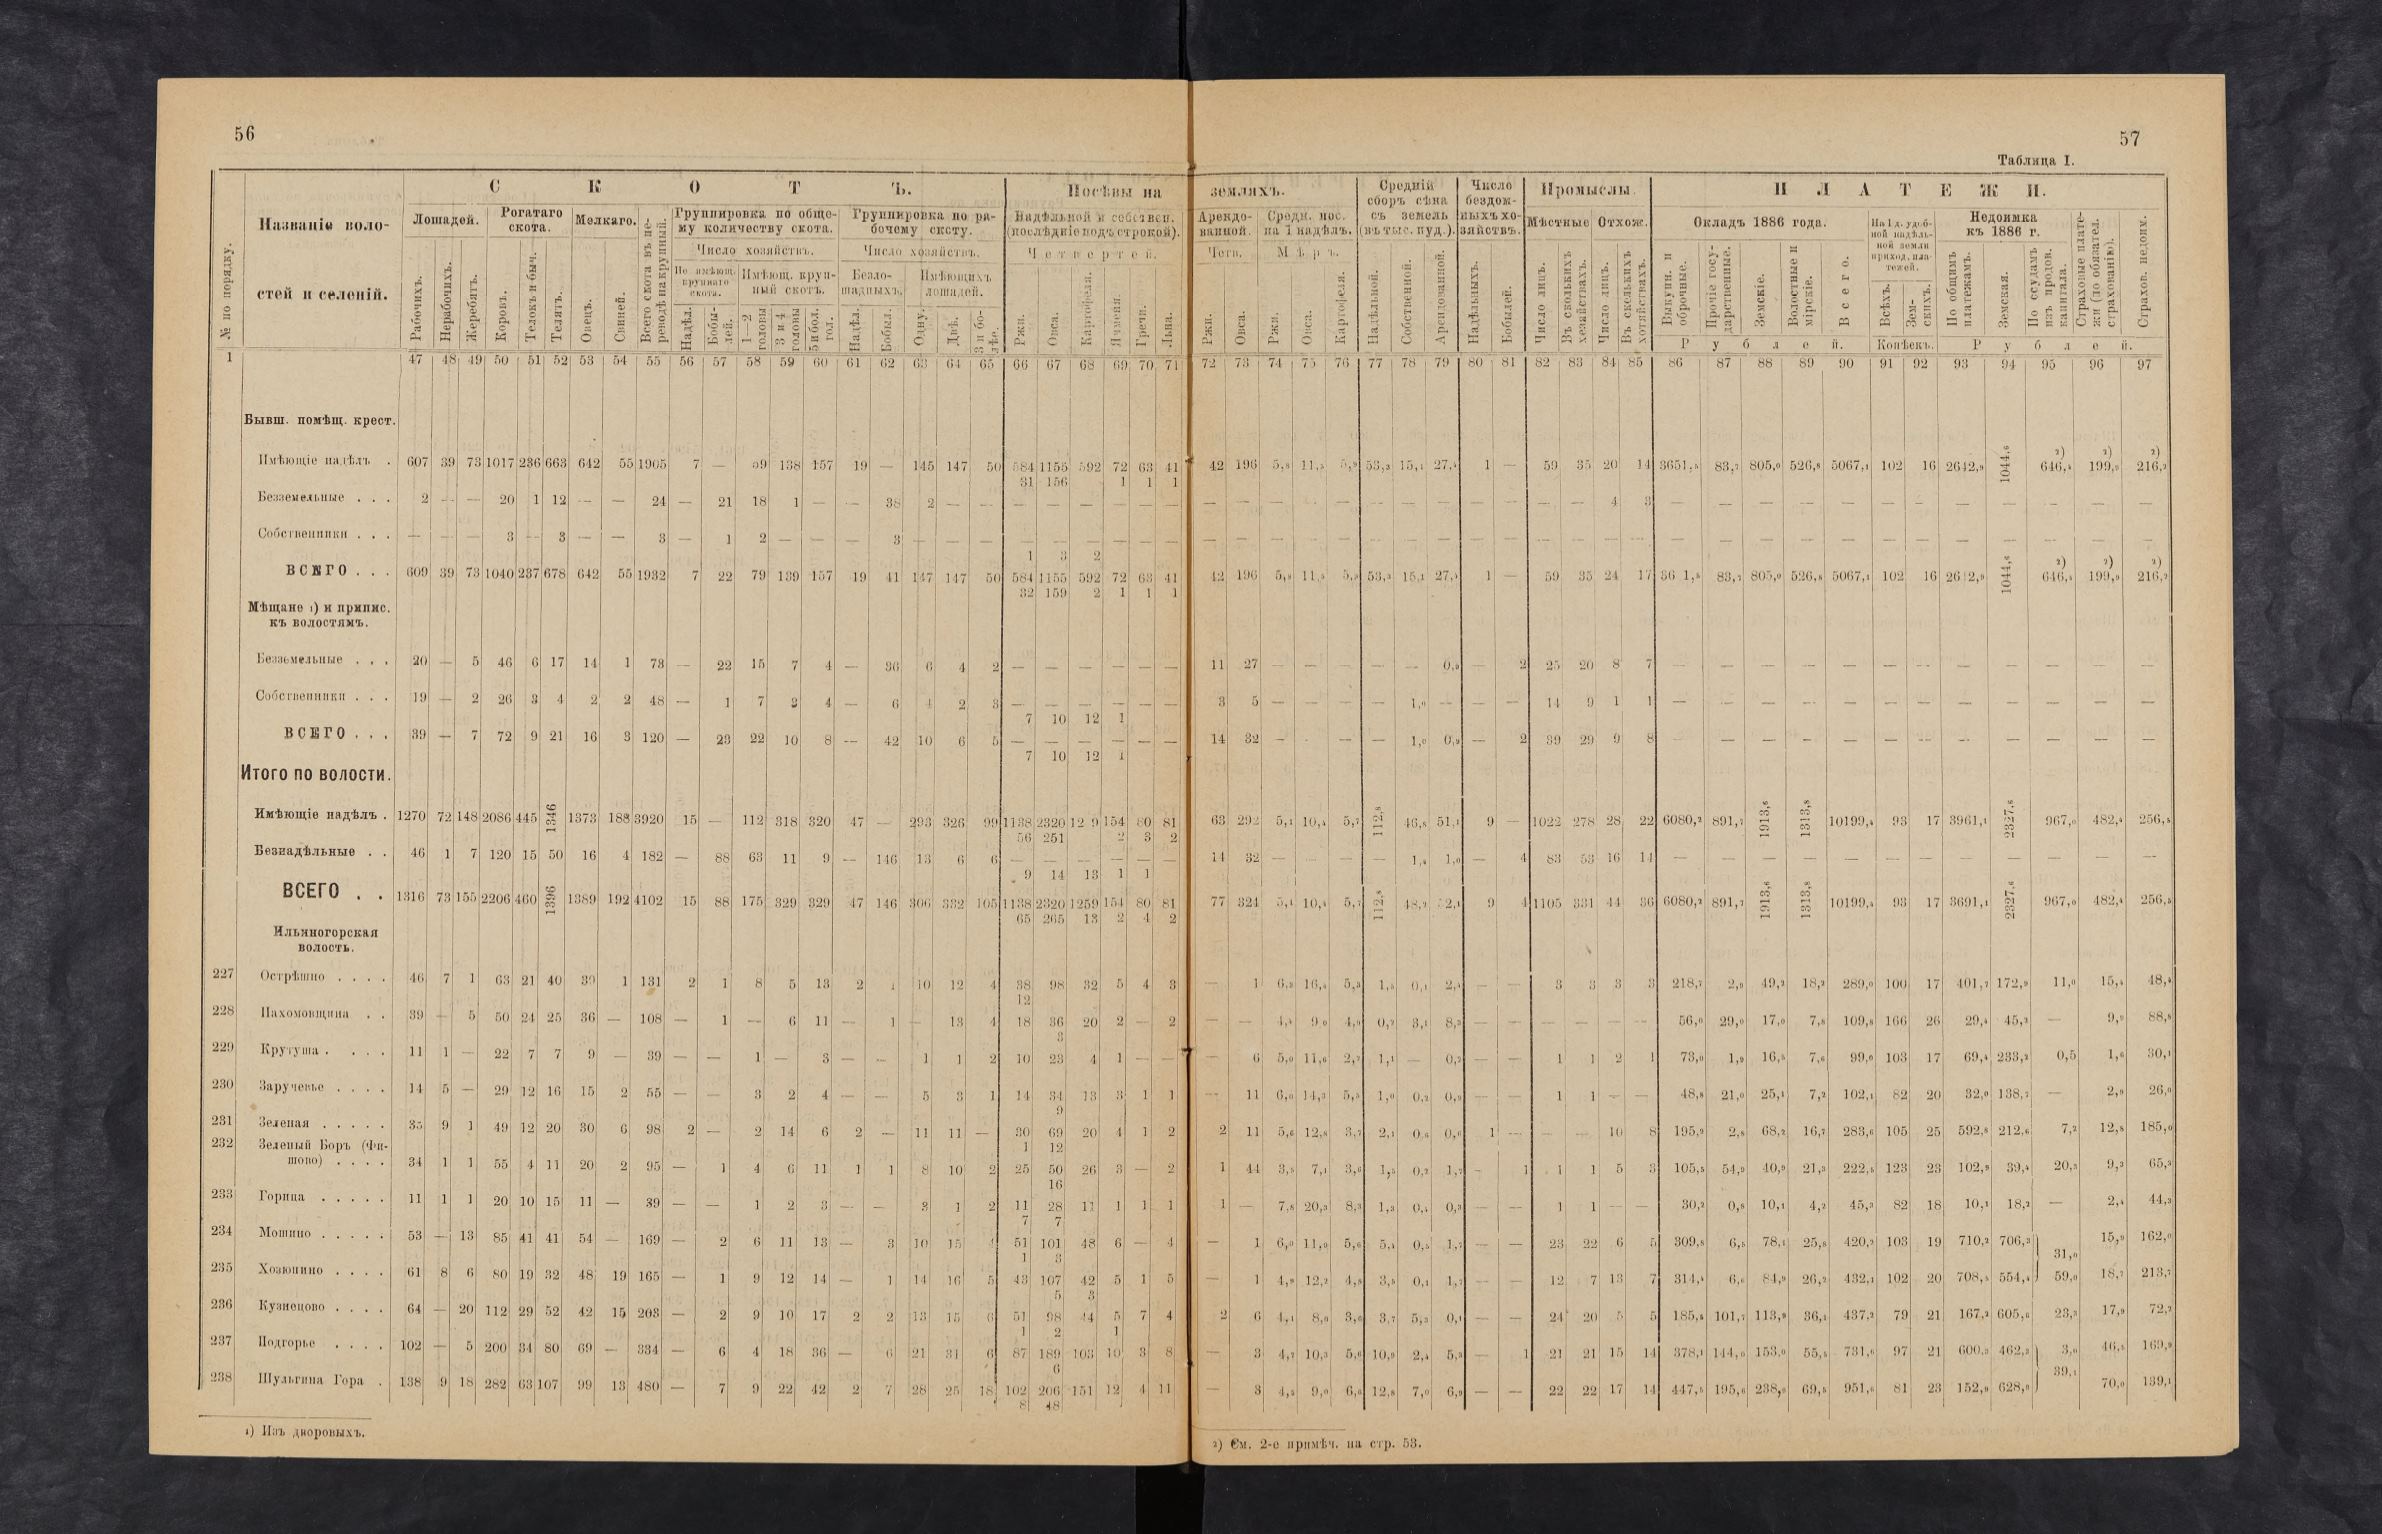 56
57
Таблица I.
№ по порядку.
Названіе воло-
стей и селеній.
С К О Т Ъ.
Посѣвы на
земляхъ.
Средній сборъ сѣна съ земель (въ тыс. пуд.).
Число бездом-ныхъ хо-зяйствъ.
Промыслы.
П Л А Т Е Ж И.
Лошадей.
Рогатаго скота.
Мелкаго.
Всего скота въ пе-реводѣ на крупный.
Группировка по обще-му количеству скота.
Группировка по ра-бочему скоту.
Надѣльной и собствен. (послѣдніе подъ строкой).
Арендо-ванной.
Средн. пос. на 1 надѣлъ.
Мѣстные
Отхож.
Окладъ 1886 года.
На 1 д. удоб-ной надѣль-ной земли приход. пла-тежей.
Недоимка къ 1886 г.
Страховые плате-жи (по обязател. страхованію).
Страхов. недоим.
Число хозяйствъ.
Число хозяйствъ.
Четвертей.
Четв.
Мѣръ.
Не имѣющ. крупнаго скота.
Имѣющ. круп-ный скотъ.
Безло-шадныхъ.
Имѣющихъ лошадей.
Рабочихъ.
Нерабочихъ.
Жеребятъ.
Коровъ.
Телокъ и быч.
Телятъ.
Овецъ.
Свиней.
Надѣл.
Бобы-лей.
1—2 головы
3 и 4 головы
5 и бол. гол.
Надѣл.
Бобыл.
Одну.
Двѣ.
3 и бо-лѣе.
Ржи.
Овса.
Картофеля.
Ячменя.
Гречи.
Льна.
Ржи.
Овса.
Ржи.
Овса.
Картофеля.
Надѣльной.
Собственной.
Арендованной.
Надѣльныхъ.
Бобылей.
Число лицъ.
Въ сколькихъ хозяйствахъ.
Число лицъ.
Въ сколькихъ хозяйствахъ.
Выкупн. и оброчные.
Прочіе госу-дарственные.
Земскіе.
Волостные и мірскіе.
Всего.
Всѣхъ.
Зем-скихъ.
По общимъ платежамъ.
Земская.
По ссудамъ изъ продов. капитала.
Рублей.
Копѣекъ.
Рублей.
1 47 48 49 50 51 52 53 54 55 56 57 58 59 60 61 62 63 64 65 66 67 68 69 70 71 72 73 74 75 76 77 78 79 80 81 82 83 84 85 86 87 88 89 90 91 92 93 94 95 96 97
Бывш. помѣщ. крест.
Имѣющіе надѣлъ . 607 39 73 1017 236 663 642 55 1905 7 — 59 138 157 19 — 145 147 50 584 1155 592 72 63 41 42 196 5,8 11,5 5,9 53,3 15,1 27,4 1 — 59 35 20 14 3651,5 83,7 805,0 526,8 5067,1 102 16 2642,9 1044,6 ²) 646,4 ²) 199,9 ²) 216,2
31 156 1 1 1
Безземельные . . . 2 — — 20 1 12 — — 24 — 21 18 1 — — 38 2 — — — — — — — — — — — — — — — — — — — — 4 3 — — — — — — — — — — — —
Собственники . . . — — — 3 — 3 — — 3 — 1 2 — — — 3 — — — — — — — — —
1 3 2
ВСЕГО . . . 609 39 73 1040 237 678 642 55 1932 7 22 79 139 157 19 41 147 147 50 584 1155 592 72 63 41 42 196 5,8 11,5 5,9 53,3 15,1 27,4 1 — 59 35 24 17 36 1,5 83,7 805,0 526,8 5067,1 102 16 2642,9 1044,6 ²) 646,4 ²) 199,9 ²) 216,2
32 159 2 1 1 1
Мѣщане ¹) и припис.
къ волостямъ.
Безземельные . . . 20 — 5 46 6 17 14 1 73 — 22 15 7 4 — 36 6 4 2 — — — — — — 11 27 — — — — — 0,9 — 2 25 20 8 7 — — — — — — — — — — — —
Собственники . . . 19 — 2 26 3 4 2 2 48 — 1 7 3 4 — 6 4 2 3 — — — — — — 3 5 — — — — 1,0 — — — 14 9 1 1 — — — — — — — — — — — —
7 10 12 1
ВСЕГО . . . 39 — 7 72 9 21 16 3 120 — 23 22 10 8 — 42 10 6 5 — — — — — — 14 32 — — — — 1,0 0,9 — 2 39 29 9 8 — — — — — — — — — — — —
7 10 12 1
Итого по волости.
Имѣющіе надѣлъ . 1270 72 148 2086 445 1346 1373 188 3920 15 — 112 318 320 47 — 293 326 99 1138 2320 12 9 154 80 81 63 292 5,4 10,4 5,7 112,8 46,8 51,1 9 — 1022 278 28 22 6080,2 891,7 1913,6 1313,8 10199,4 93 17 3961,1 2327,6 967,0 482,4 256,5
56 251 2 3 2
Безнадѣльные . . 46 1 7 120 15 50 16 4 182 — 88 63 11 9 — 146 13 6 6 — — — — — — 14 32 — — — — 1,4 1,0 — 4 83 53 16 14 — — — — — — — — — — — —
9 14 13 1 1
ВСЕГО . . 1316 73 155 2206 460 1396 1389 192 4102 15 88 175 329 329 47 146 306 332 105 1138 2320 1259 154 80 81 77 324 5,4 10,4 5,7 112,8 48,2 52,1 9 4 1105 331 44 36 6080,2 891,7 1913,6 1313,8 10199,4 93 17 3691,1 2327,6 967,0 482,4 256,5
65 265 13 2 4 2
Ильиногорская
волость.
227 Острѣшно . . . . 46 7 1 63 21 40 39 1 131 2 1 8 5 13 2 1 10 12 4 38 98 32 5 4 3 — 1 6,3 16,4 5,3 1,5 0,1 2,4 — — 3 3 3 3 218,7 2,9 49,2 18,2 289,0 100 17 401,7 172,9 11,0 15,4 48,4
12
228 Пахомовщина . . 39 — 5 50 24 25 36 — 108 — 1 — 6 11 — 1 — 13 4 18 36 20 2 — 2 — — 4,4 9,0 4,9 0,7 3,1 8,3 — — — — — — 56,0 29,0 17,0 7,8 109,8 166 26 29,4 45,2 — 9,9 88,8
3
229 Крутуша . . . . 11 1 — 22 7 7 9 — 39 — — 1 — 3 — — 1 1 2 10 23 4 1 — — — 6 5,0 11,6 2,7 1,1 — 0,2 — — 1 1 2 1 73,0 1,9 16,5 7,6 99,0 103 17 69,4 233,2 0,5 1,6 30,1
230 Заручевье . . . . 14 5 — 29 12 16 15 2 55 — — 3 2 4 — — 5 3 1 14 34 13 3 1 1 — 11 6,0 14,3 5,5 1,0 0,2 0,9 — — 1 1 — — 48,8 21,0 25,1 7,2 102,1 82 20 32,0 138,7 — 2,9 26,0
9
231 Зеленая . . . . . 35 9 1 49 12 20 30 6 98 2 — 2 14 6 2 — 11 11 — 30 69 20 4 1 2 2 11 5,6 12,8 3,7 2,1 0,6 0,6 1 — — — 10 8 195,2 2,8 68,2 16,7 283,6 105 25 592,8 212,6 7,2 12,8 185,0
1 12
232 Зеленый Боръ (Фи-
шово) . . . . 34 1 1 55 4 11 20 2 95 — 1 4 6 11 1 1 8 10 2 25 50 26 3 — 2 1 44 3,5 7,1 3,6 1,5 0,2 1,7 — 1 1 1 5 3 105,5 54,9 40,9 21,3 222,5 123 23 102,8 39,4 20,3 9,3 65,3
16
233 Горица . . . . . 11 1 1 20 10 15 11 — 39 — — 1 2 3 — — 3 1 2 11 28 11 1 1 1 1 — 7,8 20,3 8,3 1,3 0,4 0,3 — — 1 1 — — 30,2 0,8 10,1 4,2 45,3 82 18 10,1 18,2 — 2,4 44,3
7 7
234 Мошино . . . . . 53 — 13 85 41 41 54 — 169 — 2 6 11 13 — 3 10 15 4 51 101 48 6 — 4 — 1 6,0 11,0 5,6 5,4 0,5 1,7 — — 23 22 6 5 309,8 6,5 78,1 25,8 420,2 103 19 710,2 706,3 31,0 15,9 162,0
1 3
235 Хозюпино . . . . 61 8 6 80 19 32 48 19 165 — 1 9 12 14 — 1 14 16 5 43 107 42 5 1 5 — 1 4,9 12,2 4,8 3,5 0,1 1,7 — — 12 7 13 7 314,4 6,6 84,9 26,2 432,1 102 20 708,5 554,4 59,0 18,7 213,7
5 3
236 Кузнецово . . . . 64 — 20 112 29 52 42 15 203 — 2 9 10 17 2 2 13 15 6 51 98 44 5 7 4 2 6 4,1 8,0 3,6 3,7 5,3 0,1 — — 24 20 5 5 185,5 101,7 113,9 36,1 437,2 79 21 167,2 605,6 23,3 17,9 72,2
1 2 1
237 Подгорье . . . . 102 — 5 200 34 80 69 — 334 — 6 4 18 36 — 6 21 31 6 87 189 103 10 3 8 — 3 4,7 10,3 5,6 10,9 2,4 5,3 — 1 21 21 15 14 378,1 144,0 153,0 55,5 731,6 97 21 600,3 462,3 3,0 46,5 169,9
6 39,1
238 Шульгина Гора . 138 9 18 282 63 107 99 13 480 — 7 9 22 42 2 7 28 25 18 102 206 151 12 4 11 — 3 4,5 9,0 6,6 12,8 7,0 6,9 — — 22 22 17 14 447,5 195,6 238,9 69,5 951,6 81 23 152,9 628,0 70,0 139,1
8 48
¹) Изъ дворовыхъ.
²) См. 2-е примѣч. на стр. 53.